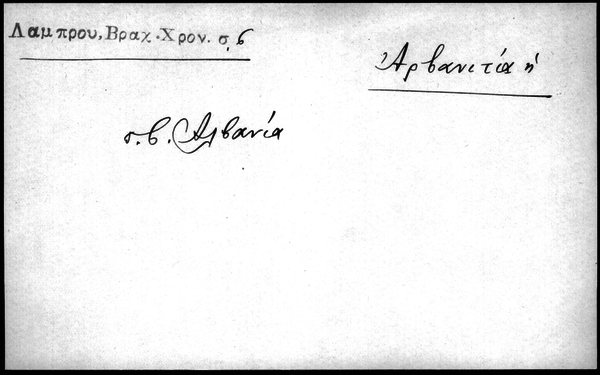 Λαμπρου, Βραχ. Χρον. σ. 6
Ἀρβανιτία ἡ
σ.β. Ἀλβανία